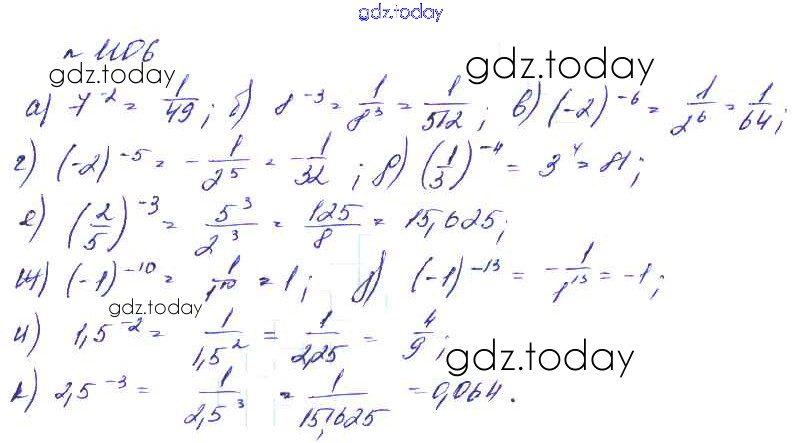 gdz.today
№ 1106
gdz.today
gdz.today
а) 7⁻² = 1/49; б) 8⁻³ = 1/8³ = 1/512; в) (-2)⁻⁶ = 1/2⁶ = 1/64;
г) (-2)⁻⁵ = -1/2⁵ = -1/32; д) (1/3)⁻⁴ = 3⁴ = 81;
е) (2/5)⁻³ = 5³/2³ = 125/8 = 15,625;
ж) (-1)⁻¹⁰ = 1/1¹⁰ = 1; з) (-1)⁻¹³ = -1/1¹³ = -1;
gdz.today
и) 1,5⁻² = 1/1,5² = 1/2,25 = 4/9;
gdz.today
к) 2,5⁻³ = 1/2,5³ = 1/15,625 = 0,064.